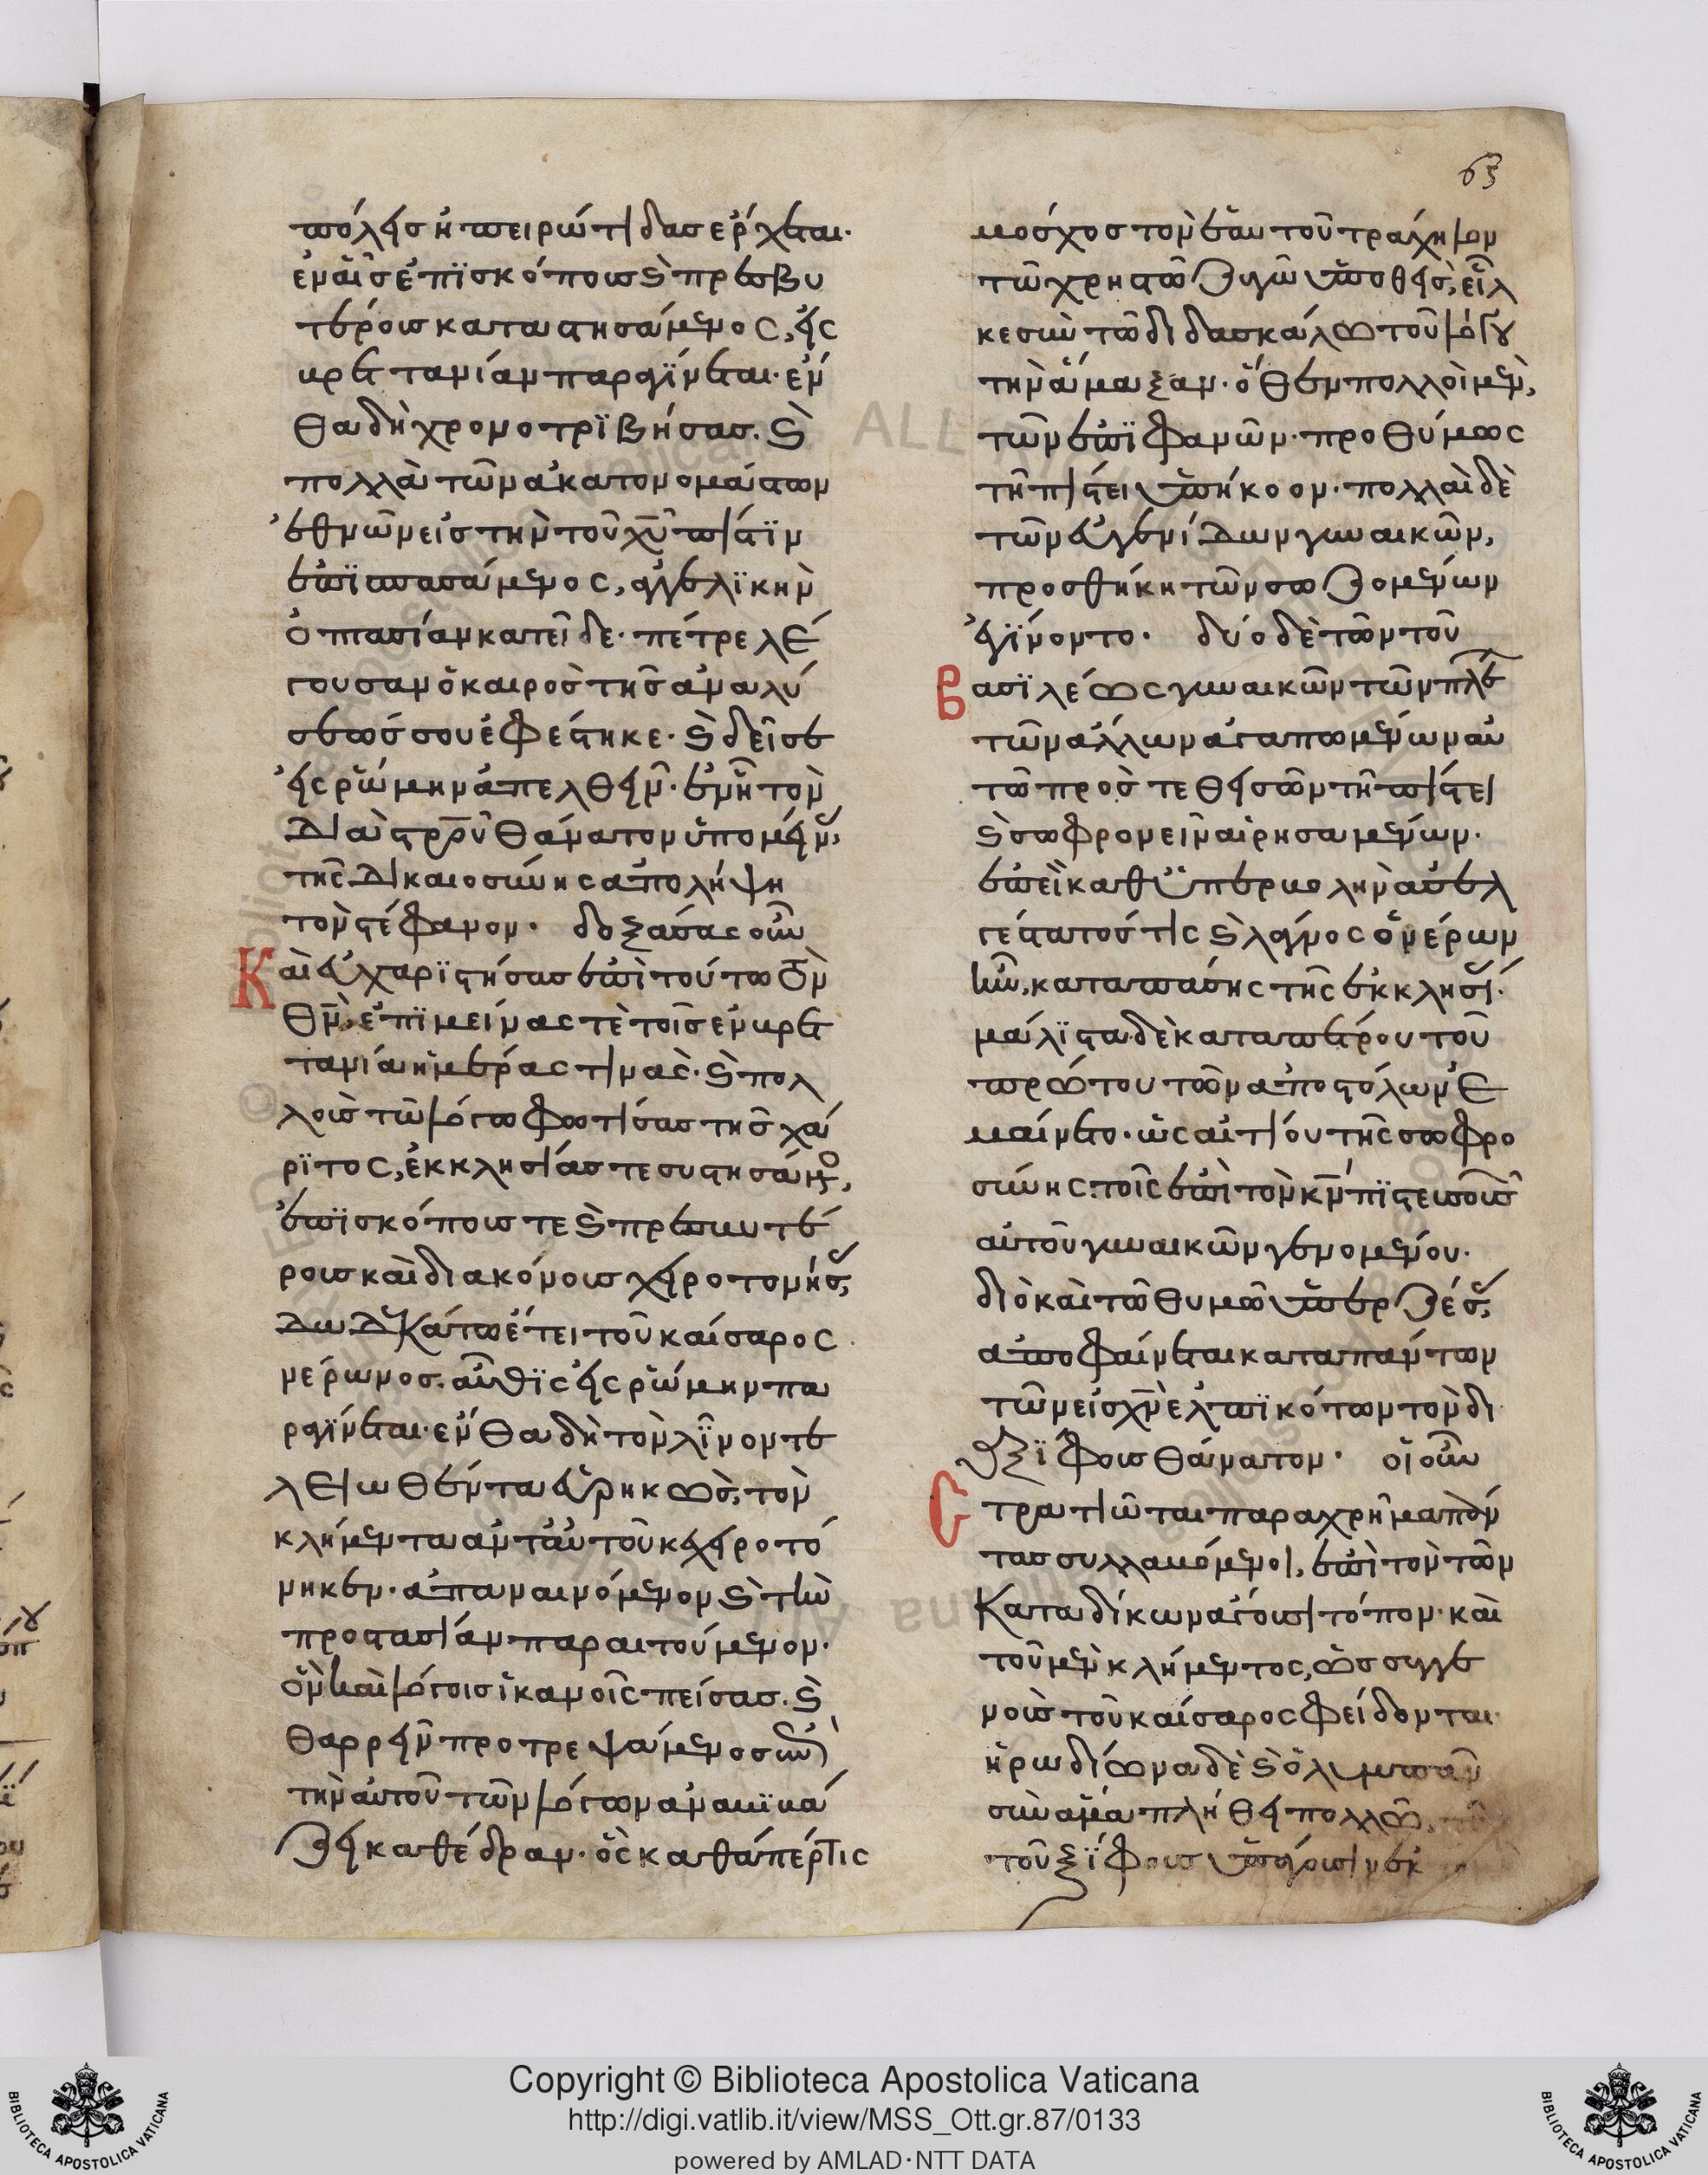 63
πόλεις ἠπειρώτιδας ἔρχεται·
ἐν αἷς ἐπϊσκόποις καὶ πρεσβυ
τέροις καταστησάμενος, εἰς
βρεττανίαν παραγίνεται· ἐν
θα δὴ χρονοτριβήσας. καὶ
πολλὰ τῶν ἀκατονομάστων
ἐθνῶν εἰς τὴν τοῦ χυ πίστϊν
ἐπϊσπασάμενος, ἀγγελϊκὴν
ὀπτασίαν κατεῖδε· πέτρε λέ
γουσαν ὁ καιρὸς τῆς ἀναλύ
σεώς σου ἐφέστηκε· καὶ δεῖ σε
εἰς ῥώμην ἀπελθεῖν· ἐν ἧ τὸν
διὰ στρου θάνατον ὑπομείνας,
τῆς δικαιοσύνης ἀπολήψη
τὸν στέφανον· δοξάσας οὖν
Καὶ εὐχαρϊστήσας ἐπὶ τούτω τὸν
θν, ἐπϊμείνας τὲ τοῖς ἐν βρετ
τανία ἡμέρας τινὰς· καὶ πολ
λοὺς τῶ λόγω φωτίσας τῆς χά
ρϊτος, ἐκκλησίας τε συστησάμενος,
ἐπϊσκόποις τε καὶ πρεσβυτέ
ροις καὶ διακόνοις χειροτονήσας,
δωδεκάτω ἔτει τοῦ καίσαρος
νέρωνος. αὖθϊς εἰς ῥώμην πα
ραγίνεται· ἔνθα δὴ τὸν λῖνον τε
λειωθέντα εὑρηκὼς, τὸν
κλήμεντα ἀντ' αὐτοῦ κεχειροτό
νηκεν· ἀπαναινόμενον καὶ τὴν
προστασίαν παραιτούμενον·
ὃν καὶ λόγοις ἱκανοῖς πείσας. καὶ
θαρρεῖν προτρεψάμενος σὺν
τὴν αὐτοῦ τῶν λόγων ἀναβϊβά
ζει καθέδραν· ὃς καθάπέρ τις
μόσχος τὸν ἑαυτοῦ τράχηλον
τῶ χρηστῶ ζυγῶ ὑποθεὶς, εἷλ
κε σὺν τῶ διδασκάλω τοῦ λόγου
τὴν ἅμαξαν· ὅθεν πολλοὶ μὲν,
τῶν ἐπϊφανῶν· προθύμως
τῆ πίστει ὑπήκοον· πολλαὶ δὲ
τῶν εὐγενίδων γυναικῶν,
προσθήκη τῶν σωζομένων
ἐγίνοντο· δύο δὲ τῶν τοῦ
Βασϊλέως γυναικῶν τῶν πλέ
τῶν ἄλλων ἀγαπωμένων αὐ
τῶ προστεθεισῶν τῆ πίστει
καὶ σωφρονεῖν αἱρησαμένων.
ἐπεὶ καθ' ὑπερβολὴν ἀσελ
γέστατός τις καὶ λάγνος ὁ νέρων
ἦν, κατὰ πάσης τῆς ἐκκλησίας.
μάλϊστα δὲ κατὰ πέτρου τοῦ
πρώτου τῶν ἀποστόλων ἐ
μαίνετο· ὡς αἰτίου τῆς σωφρο
σύνης τοῖς ἐπὶ τὸν κν πϊστευσάσαις
αὐτοῦ γυναικῶν γενομένου·
διὸ καὶ τῶ θυμῶ ὑπερζέσας,
ἀποφαίνεται κατὰ πάντων
τῶν εἰς χν ἐλπϊκότων τὸν δι
ὰ ξίφους θάνατον· οἱ οὖν
Στρατιῶται παραχρῆμα πάν
τας συλλαβόμενοι, ἐπὶ τὸν τῶν
Καταδίκων ἄγουσι τόπον· καὶ
τοῦ μὲν κλήμεντος, ὡς συγγε
νοῦς τοῦ καίσαρος φείδονται·
ἡρωδίωνα δὲ καὶ ὀλυμπᾶν
σὺν ἅμα πλήθει πολλῶ,
τοῦ ξίφους
Copyright © Biblioteca Apostolica Vaticana
http://digi.vatlib.it/view/MSS_Ott.gr.87/0133
powered by AMLAD·NTT DATA
BIBLIOTECA APOSTOLICA VATICANA
BIBLIOTECA APOSTOLICA VATICANA